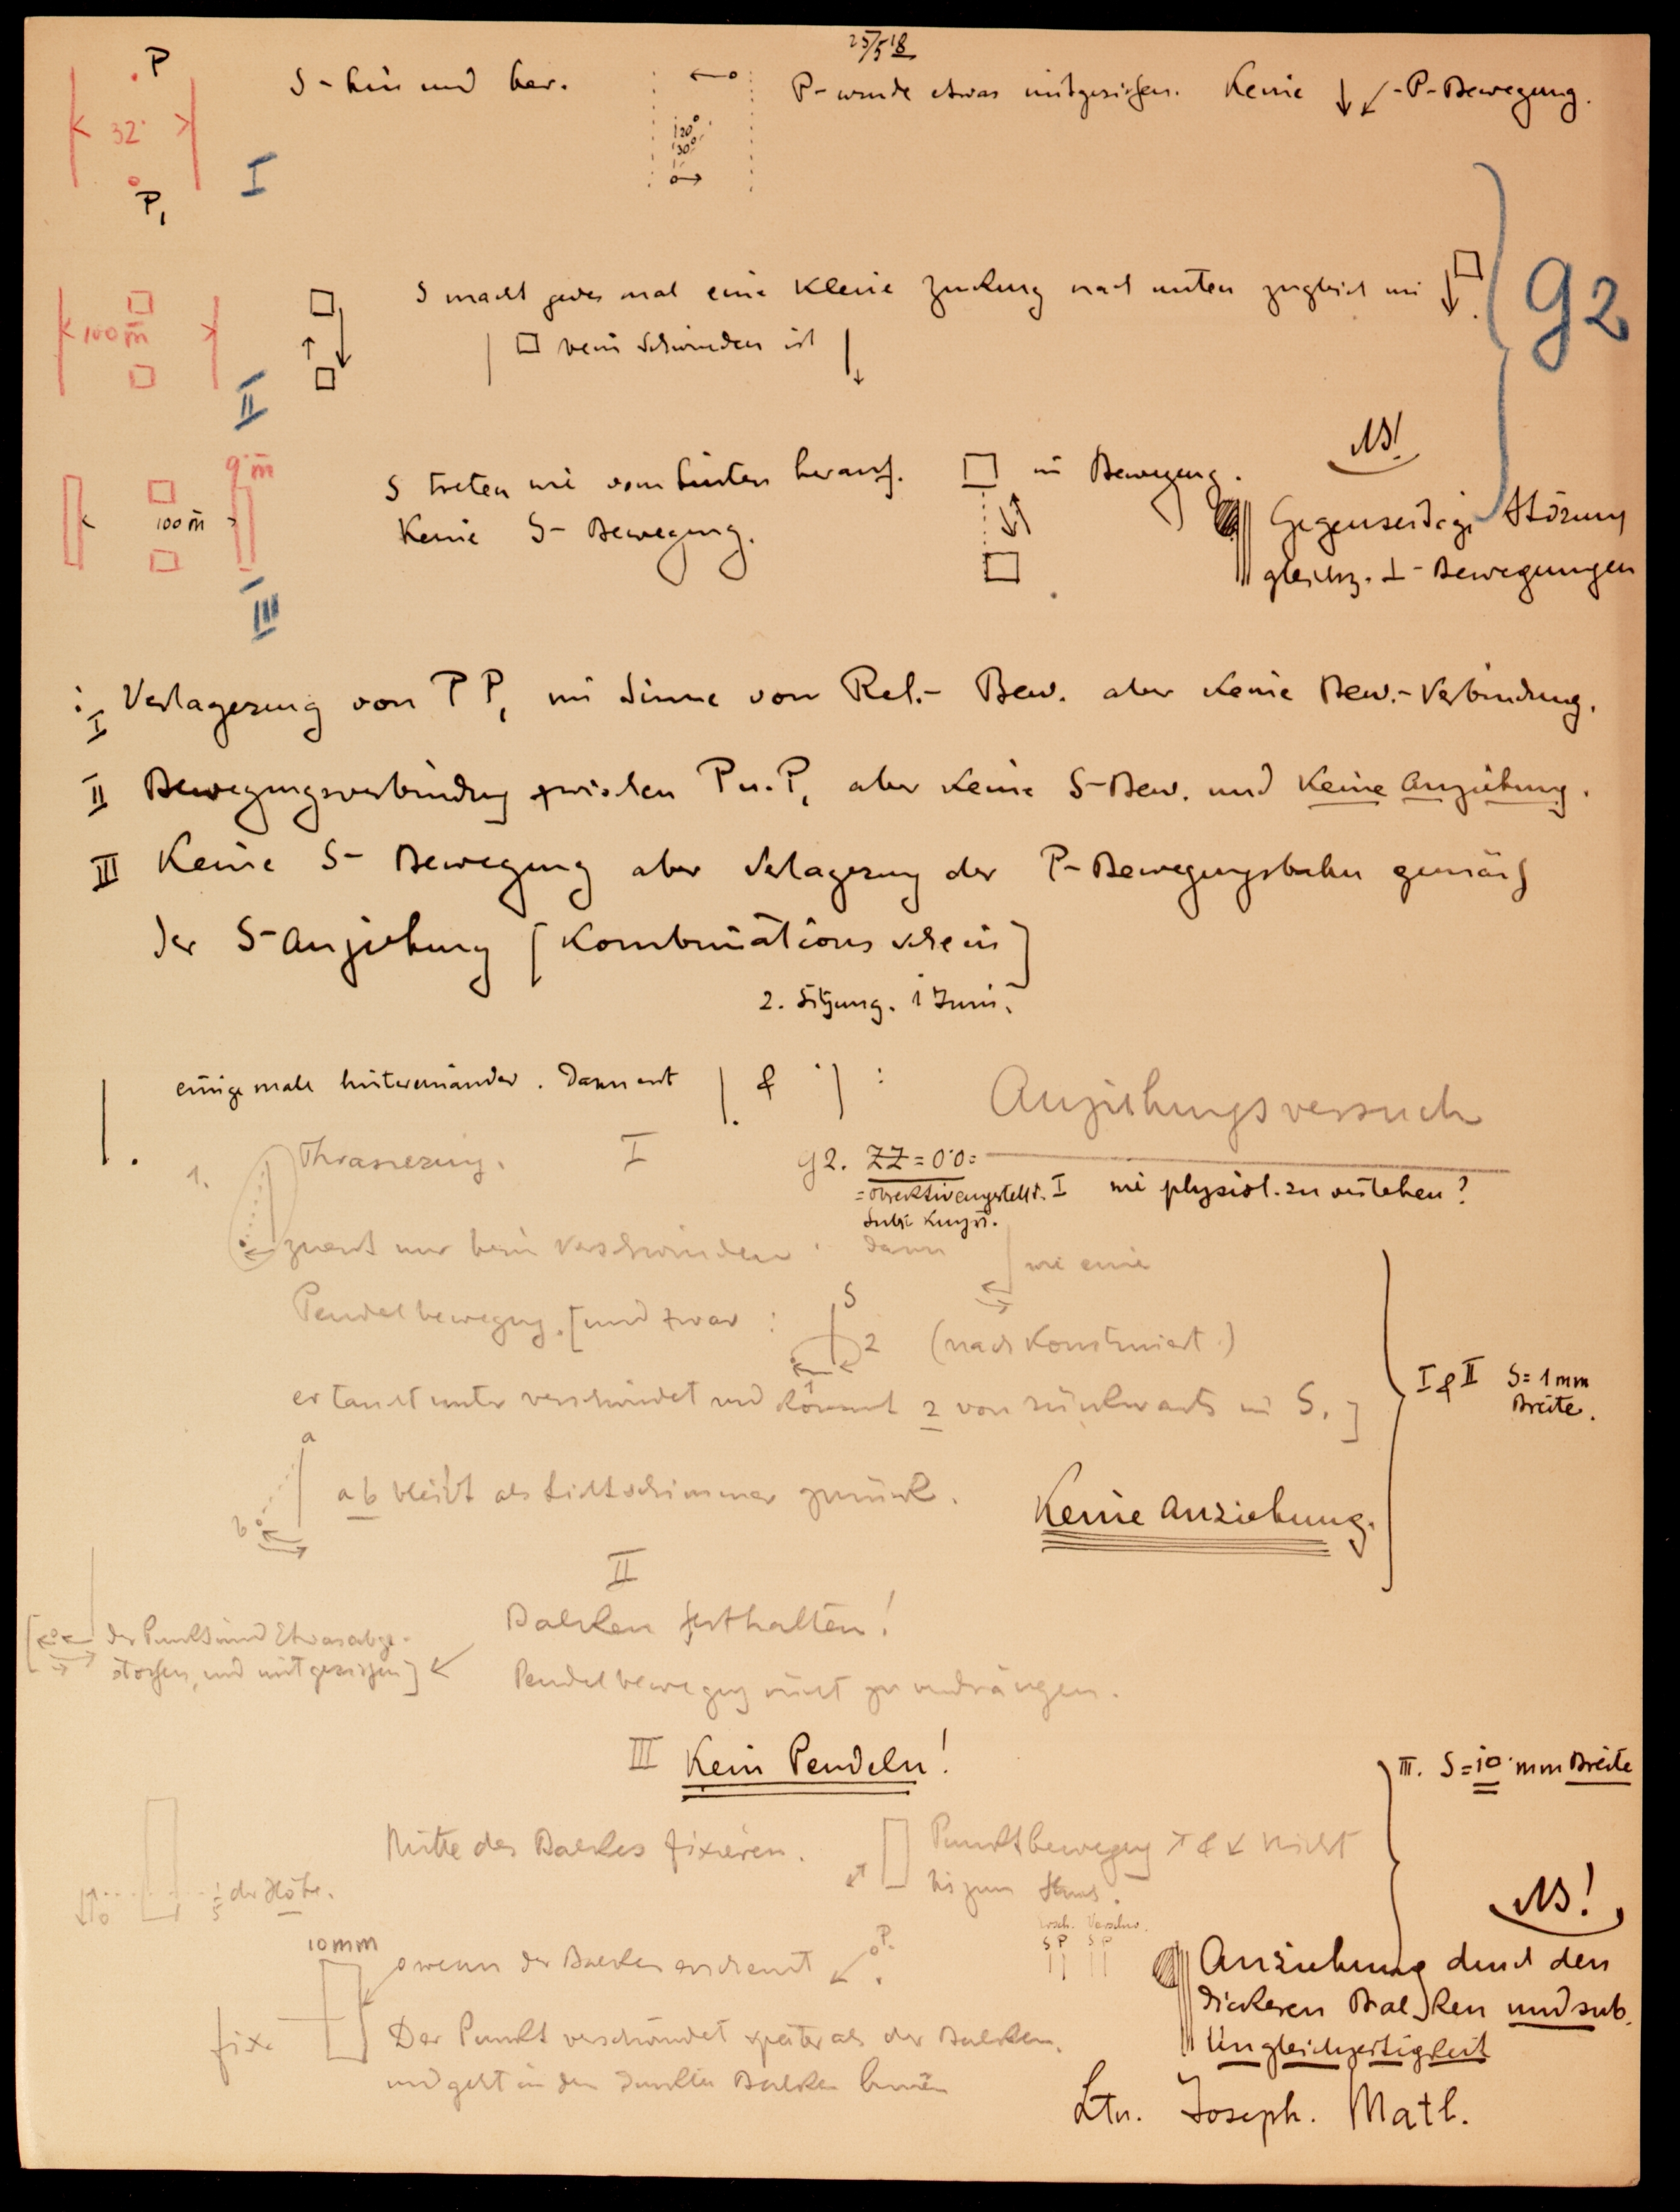 25/5 18
P
S - hin und her.
P - wurde etwas mitgerissen. Keine ↓ ↙ - P - Bewegung.
32
120°
130°
P₁
I
S macht jedes mal eine kleine Zuckung nach unten zugleich mit
100 m
□ beim Schwinden ist
II
g2
NB!
9 m
S treten wie von hinten herauf. □ in Bewegung.
100 m
Keine S - Bewegung.
Gegenseitige Störung
gleichz. ⊥ - Bewegungen
III
I Verlagerung von P P₁ im Sinne von Rel. - Bew. aber keine Bew. - Verbindung.
II Bewegungsverbindung zwischen P u. P₁ aber keine S - Bew. und keine Anziehung.
III Keine S - Bewegung aber Verlagerung der P - Bewegungsbahn gemäß
der S - Anziehung [Kombinations schein]
2. Sitzung. 1 Juni.
einige male hintereinander. Dann erst | & | :
Anziehungsversuch
1.
I
g2. ZZ = 0'0 =
= objektiv eingestellt. I wie physiol. zu verstehen?
zuerst nur beim Verschwinden dann wie eine
Pendelbewegung. [und zwar : S 2 (nach Konstruiert.)
1
er taucht unter verschwindet und kommt 2 von rückwärts in S.]
I & II S = 1 mm
Breite.
a
ab bleibt als Lichtschimmer zurück.
b
Keine Anziehung.
II
Balken festhalten!
der Punkt wird Etwas abge-
stoßen, und mitgerissen]
Pendelbewegung nicht zu verdrängen.
III Kein Pendeln!
III. S = 10 mm Breite
Mitte des Balkes fixieren.
Punktbewegung ↗ & ↙ nicht
bis zum
der Höhe.
NB!
Ersch. Verschw.
S P S P
10 mm
wenn der Balken erscheint
P.
Anziehung durch den
dickeren Balken und sub.
Ungleichzeitigkeit
fix.
Der Punkt verschwindet später als der Balken.
und geht in den dunklen Balken hinein
Ltn. Joseph. Matl.